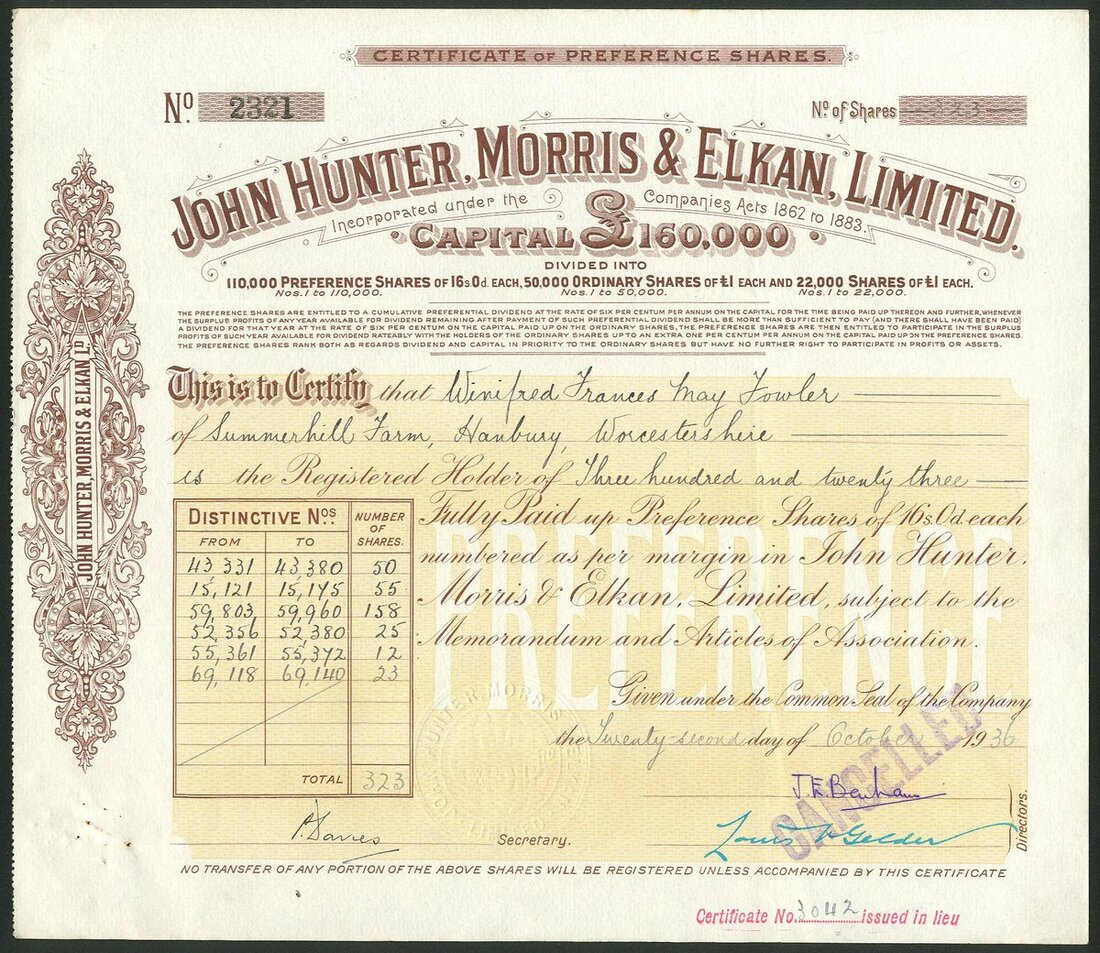 CERTIFICATE OF PREFERENCE SHARES.
No. 2321
No. of Shares 323
JOHN HUNTER, MORRIS & ELKAN, LIMITED.
Incorporated under the Companies Acts 1862 to 1883.
CAPITAL £160,000
DIVIDED INTO
110,000 PREFERENCE SHARES OF 16s.0d. EACH, 50,000 ORDINARY SHARES OF £1 EACH AND 22,000 SHARES OF £1 EACH.
Nos. 1 to 110,000. Nos. 1 to 50,000. Nos. 1 to 22,000.
THE PREFERENCE SHARES ARE ENTITLED TO A CUMULATIVE PREFERENTIAL DIVIDEND AT THE RATE OF SIX PER CENTUM PER ANNUM ON THE CAPITAL FOR THE TIME BEING PAID UP THEREON AND FURTHER, WHENEVER
THE SURPLUS PROFITS OF ANY YEAR AVAILABLE FOR DIVIDEND REMAINING AFTER PAYMENT OF SUCH PREFERENTIAL DIVIDEND SHALL BE MORE THAN SUFFICIENT TO PAY (AND THERE SHALL HAVE BEEN PAID)
A DIVIDEND FOR THAT YEAR AT THE RATE OF SIX PER CENTUM ON THE CAPITAL PAID UP ON THE ORDINARY SHARES, THE PREFERENCE SHARES ARE THEN ENTITLED TO PARTICIPATE IN THE SURPLUS
PROFITS OF SUCH YEAR AVAILABLE FOR DIVIDEND RATEABLY WITH THE HOLDERS OF THE ORDINARY SHARES UP TO AN EXTRA ONE PER CENTUM PER ANNUM ON THE CAPITAL PAID UP ON THE PREFERENCE SHARES.
THE PREFERENCE SHARES RANK BOTH AS REGARDS DIVIDEND AND CAPITAL IN PRIORITY TO THE ORDINARY SHARES BUT HAVE NO FURTHER RIGHT TO PARTICIPATE IN PROFITS OR ASSETS.
JOHN HUNTER, MORRIS & ELKAN LD.
This is to Certify that Winifred Frances May Fowler
of Summerhill Farm, Hanbury, Worcestershire
is the Registered Holder of Three hundred and twenty three
Fully Paid up Preference Shares of 16s.0d. each
numbered as per margin in John Hunter,
Morris & Elkan, Limited, subject to the
Memorandum and Articles of Association.
PREFERENCE
DISTINCTIVE Nos. NUMBER OF SHARES.
FROM TO
43,331 43,380 50
15,121 15,175 55
59,803 59,960 158
52,356 52,380 25
55,361 55,372 12
69,118 69,140 23
TOTAL 323
Given under the Common Seal of the Company
the Twenty-second day of October 1936
CANCELLED
HUNTER, MORRIS
J. E. Benham
Louis A Gelder
Directors.
P. Davies Secretary.
NO TRANSFER OF ANY PORTION OF THE ABOVE SHARES WILL BE REGISTERED UNLESS ACCOMPANIED BY THIS CERTIFICATE
Certificate No. 3042 issued in lieu